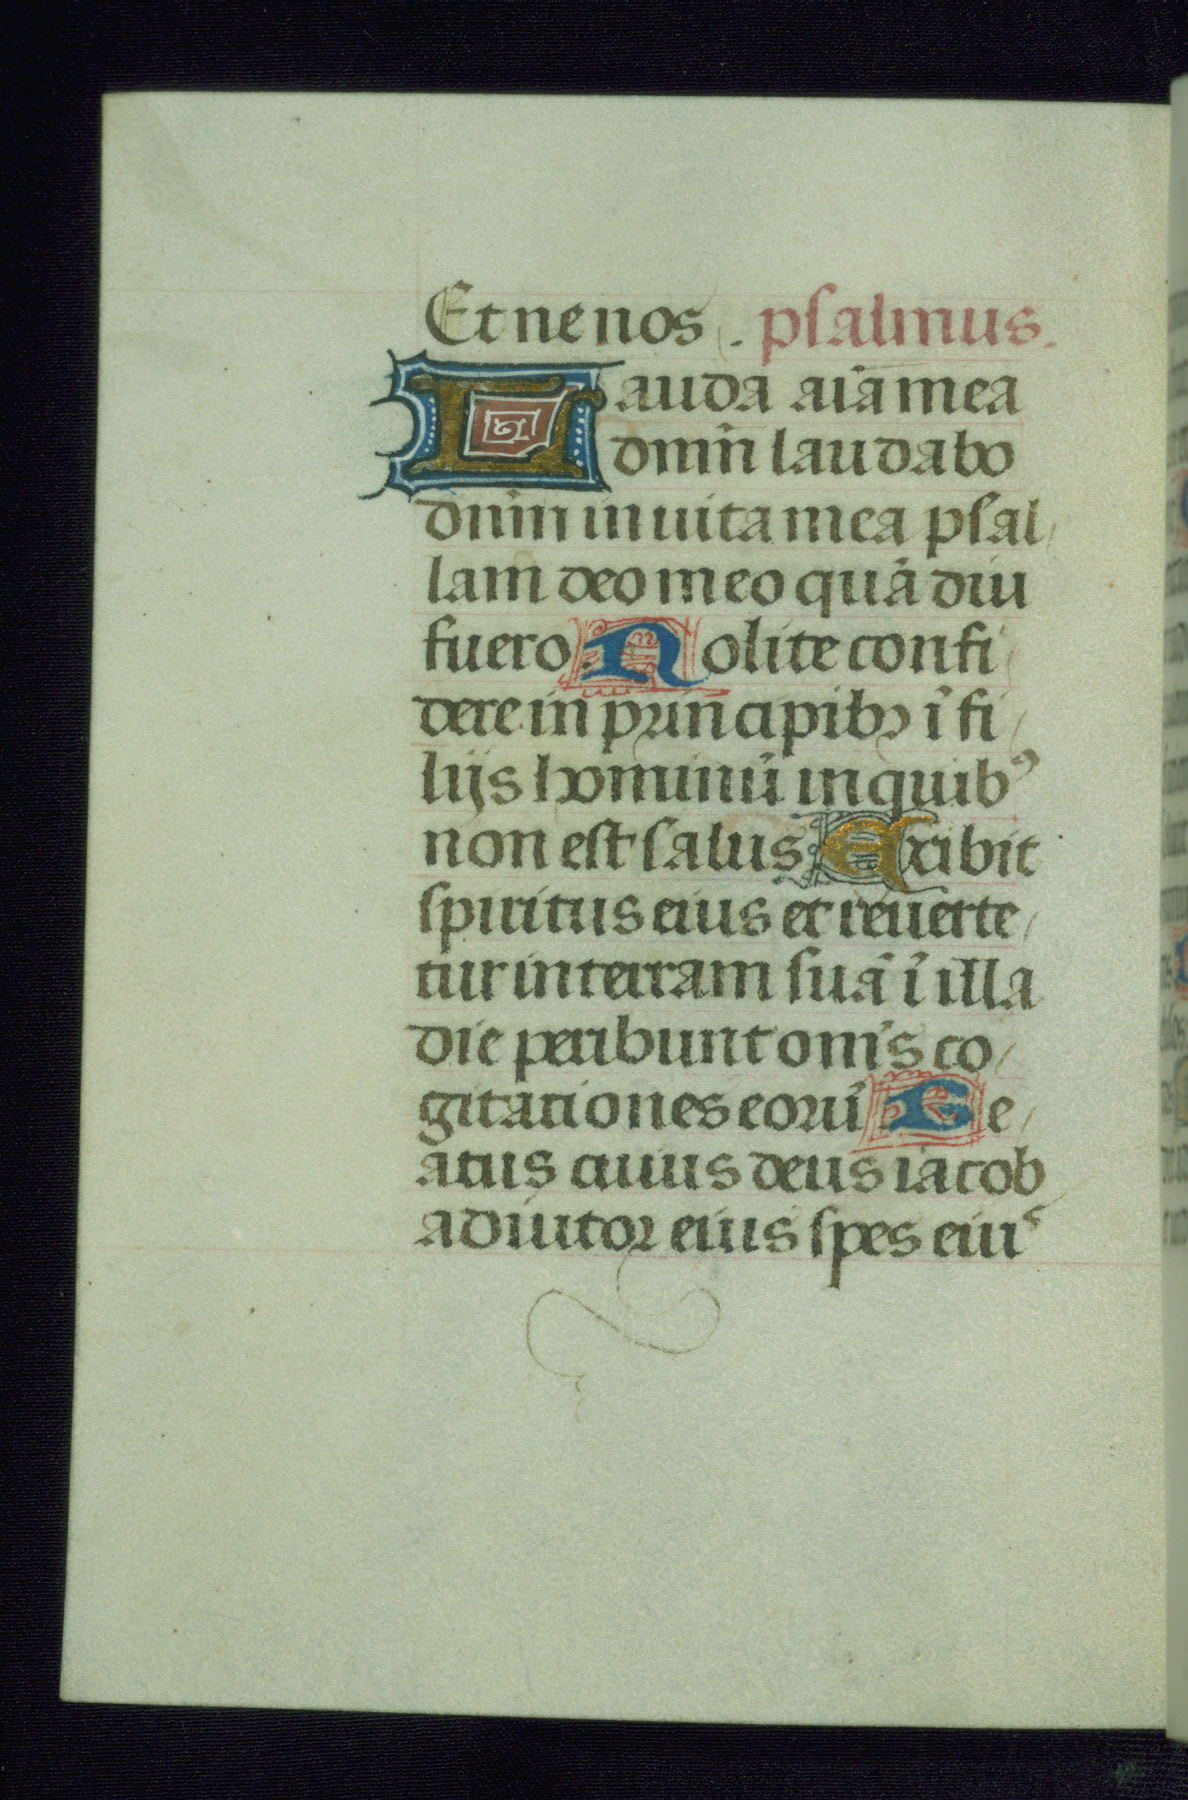 Et ne nos . psalmus.
Lauda aīa mea
dnm̄ laudabo
dnm̄ in uita mea psal
lam deo meo quā diu
fuero. Nolite confi
dere in principibꝫ ī fi
lijs hominū in quibꝰ
non est salus Exibit
spiritus eius et reuerte
tur in terram suā ī illa
die peribunt om̄s co
gitationes eorū Be
atus cuius deus iacob
adiutor eius spes eius